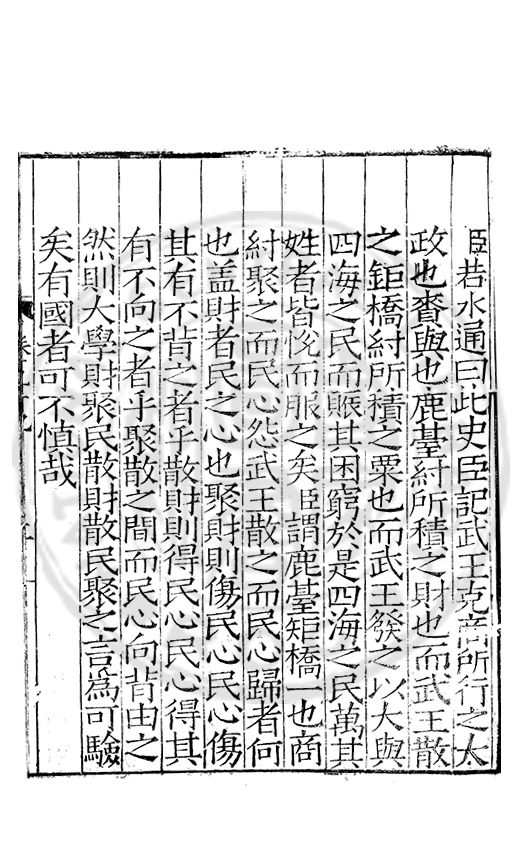 臣若水通曰此史臣記武王克商所行之大
政也賚與也鹿䑓紂所積之財也而武王散
之鉅橋紂所積之粟也而武王發之以大與
四海之民而賑其困窮於是四海之民萬其
姓者皆悅而服之矣臣謂鹿䑓矩橋一也商
紂聚之而民心怨武王散之而民心歸者何
也盖財者民之心也聚財則傷民心民心傷
其有不背之者乎散財則得民心民心得其
有不向之者乎聚散之間而民心向背由之
然則大學財聚民散財散民聚之言爲可驗
矣有國者可不慎哉